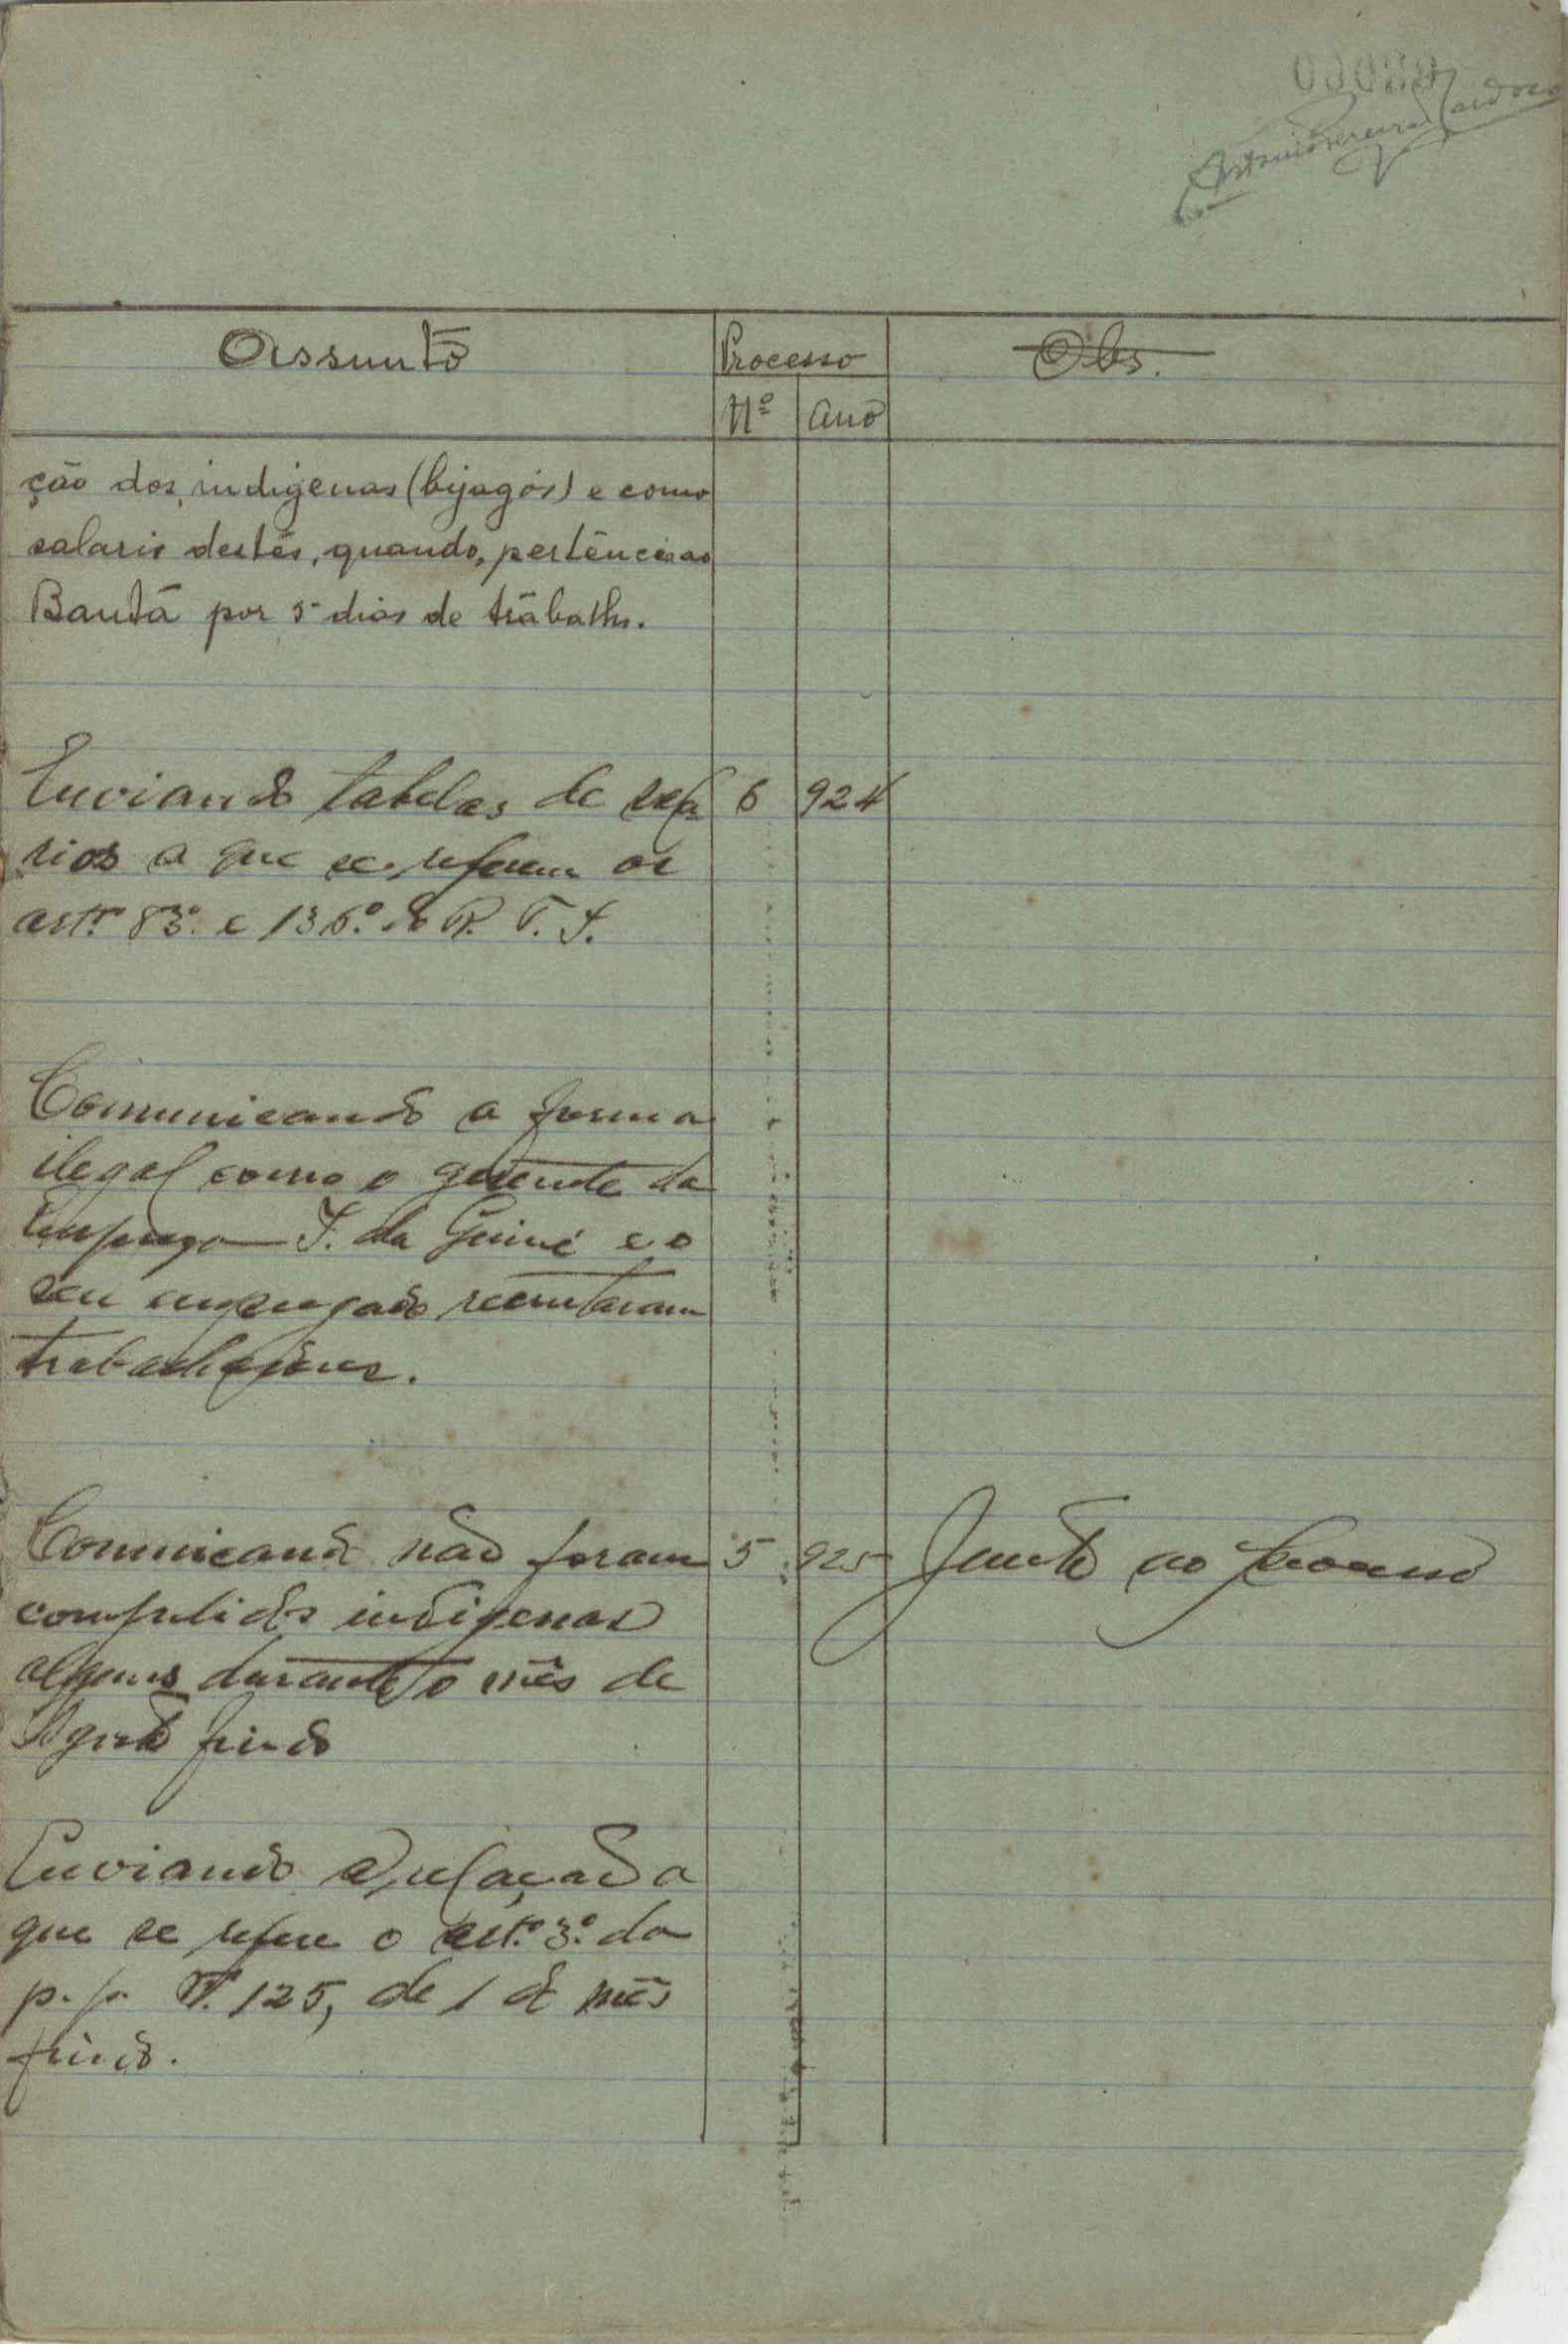 Antonio Pereira Cardoso
Assunto
Processo
Obs.
Nº
Ano
ção dos indigenas (bijagós) e como
salario destes, quando, pertencia ao
Bantã por 5 dias de trabalho.
Enviando tabelas de sala 6 924
rios a que se referem os
artºs 83º. e 136º. do R. T. I.
Comunicando a forma
ilegal como o gerente da
Empreza I. da Guiné e o
seu empregado recrutaram
trabalhadores.
Comunicando não foram 5 925 Junto ao processo
compelidos indigenas
alguns durante o mês de
Agosto findo
Enviando a relação a
que se refere o artº. 3º. da
p. p. Nº. 125, de 1 do mês
findo.